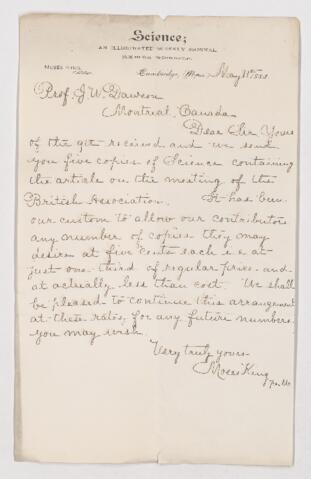 Science;
AN ILLUSTRATED WEEKLY JOURNAL.
MOSES KING,
Cambridge, Mass., May 11th 188
Prof. J. W. Dawson
Montreal, Canada.
Dear Sir, Yours
of the 9th received and we send
you five copies of Science containing
the article on the meeting of the
British Association. It has been
our custom to allow our contributors
any number of copies they may
desire at five cents each i.e. at
just one-third of regular price and
at actually less than cost. We shall
be pleased to continue this arrangement
at these rates, for any future numbers
you may wish.
Very truly yours
Moses King